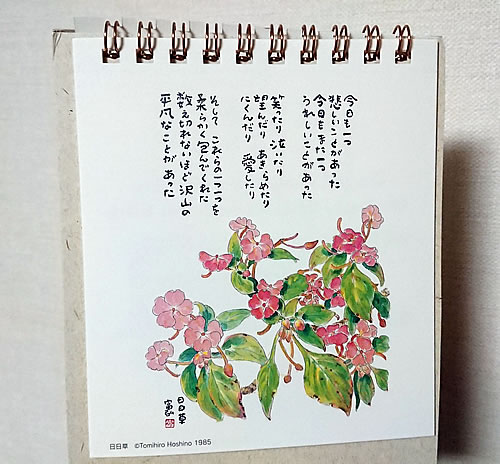 今日も一つ
悲しいことがあった
今日もまた一つ
うれしいことがあった
笑ったり 泣いたり
望んだり あきらめたり
にくんだり 愛したり
そして これらの一つ一つを
柔らかく包んでくれた
数え切れないほど沢山の
平凡なことがあった
日日草
富
日日草 ©Tomihiro Hoshino 1985